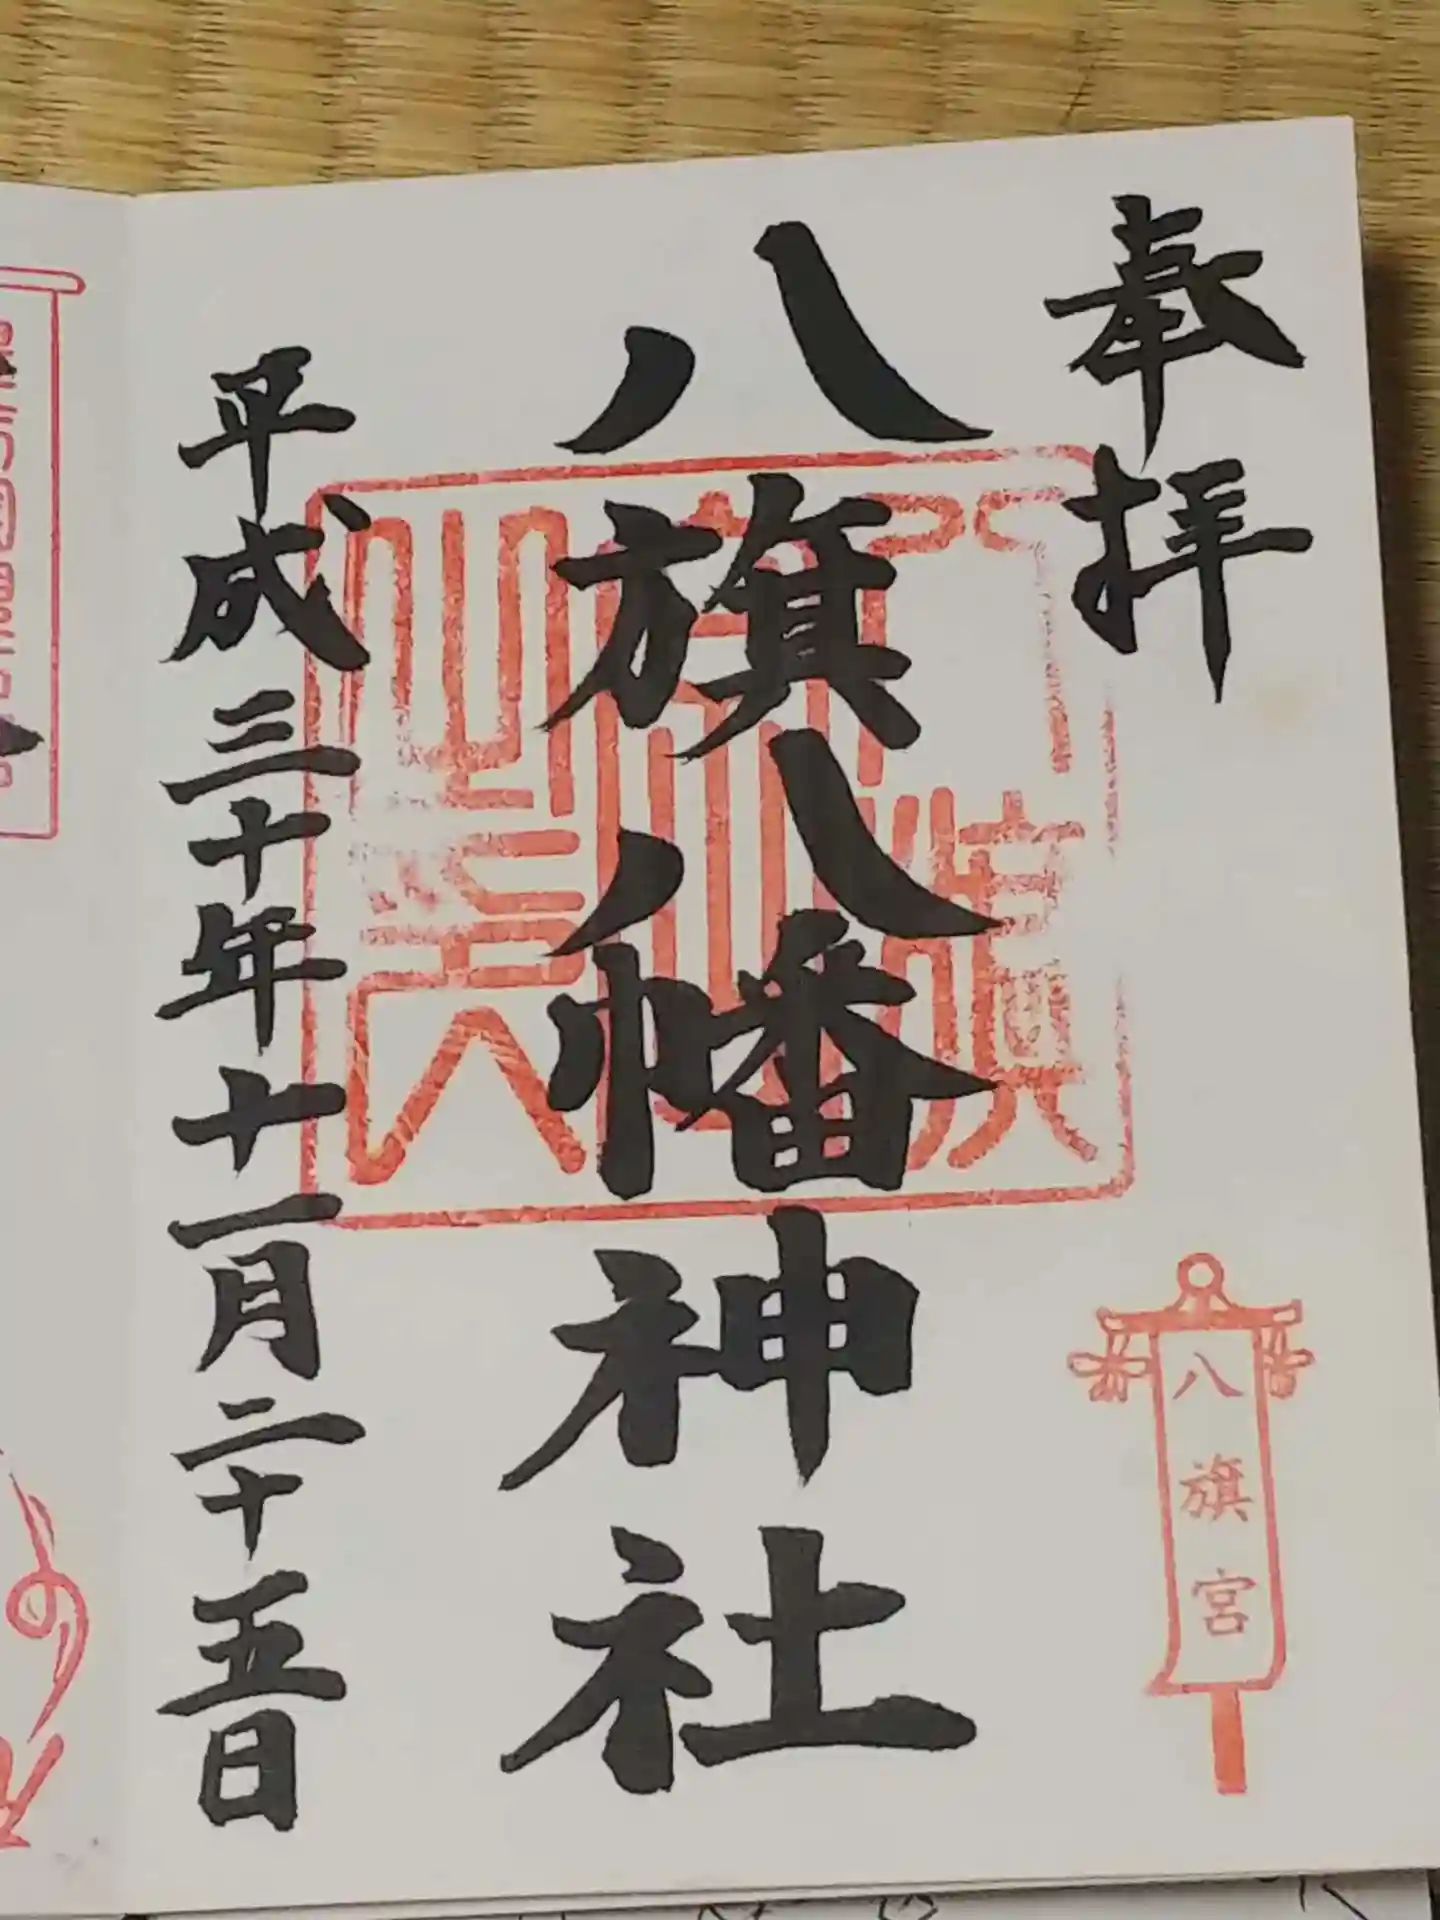 奉拝
八旗宮
八旗八幡神社
平成三十年十一月二十五日